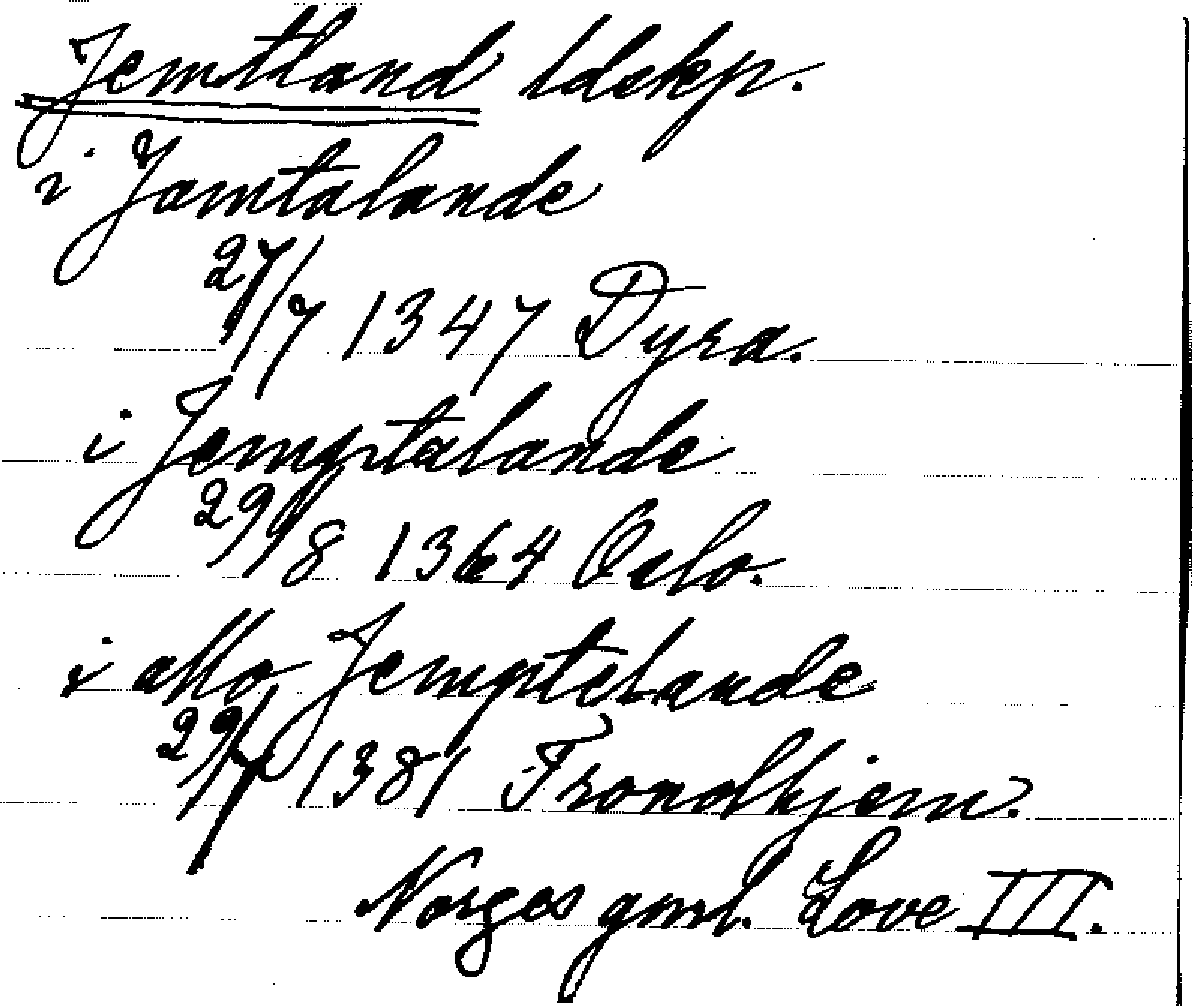 Jemtland ldskp.
i Jamtalande
27/7 1347 Dyra.
i Jemptalande
29/8 1364 Oslo.
i allo Jemptelande
29/7 1381 Trondhjem.
Norges gml. Love III.